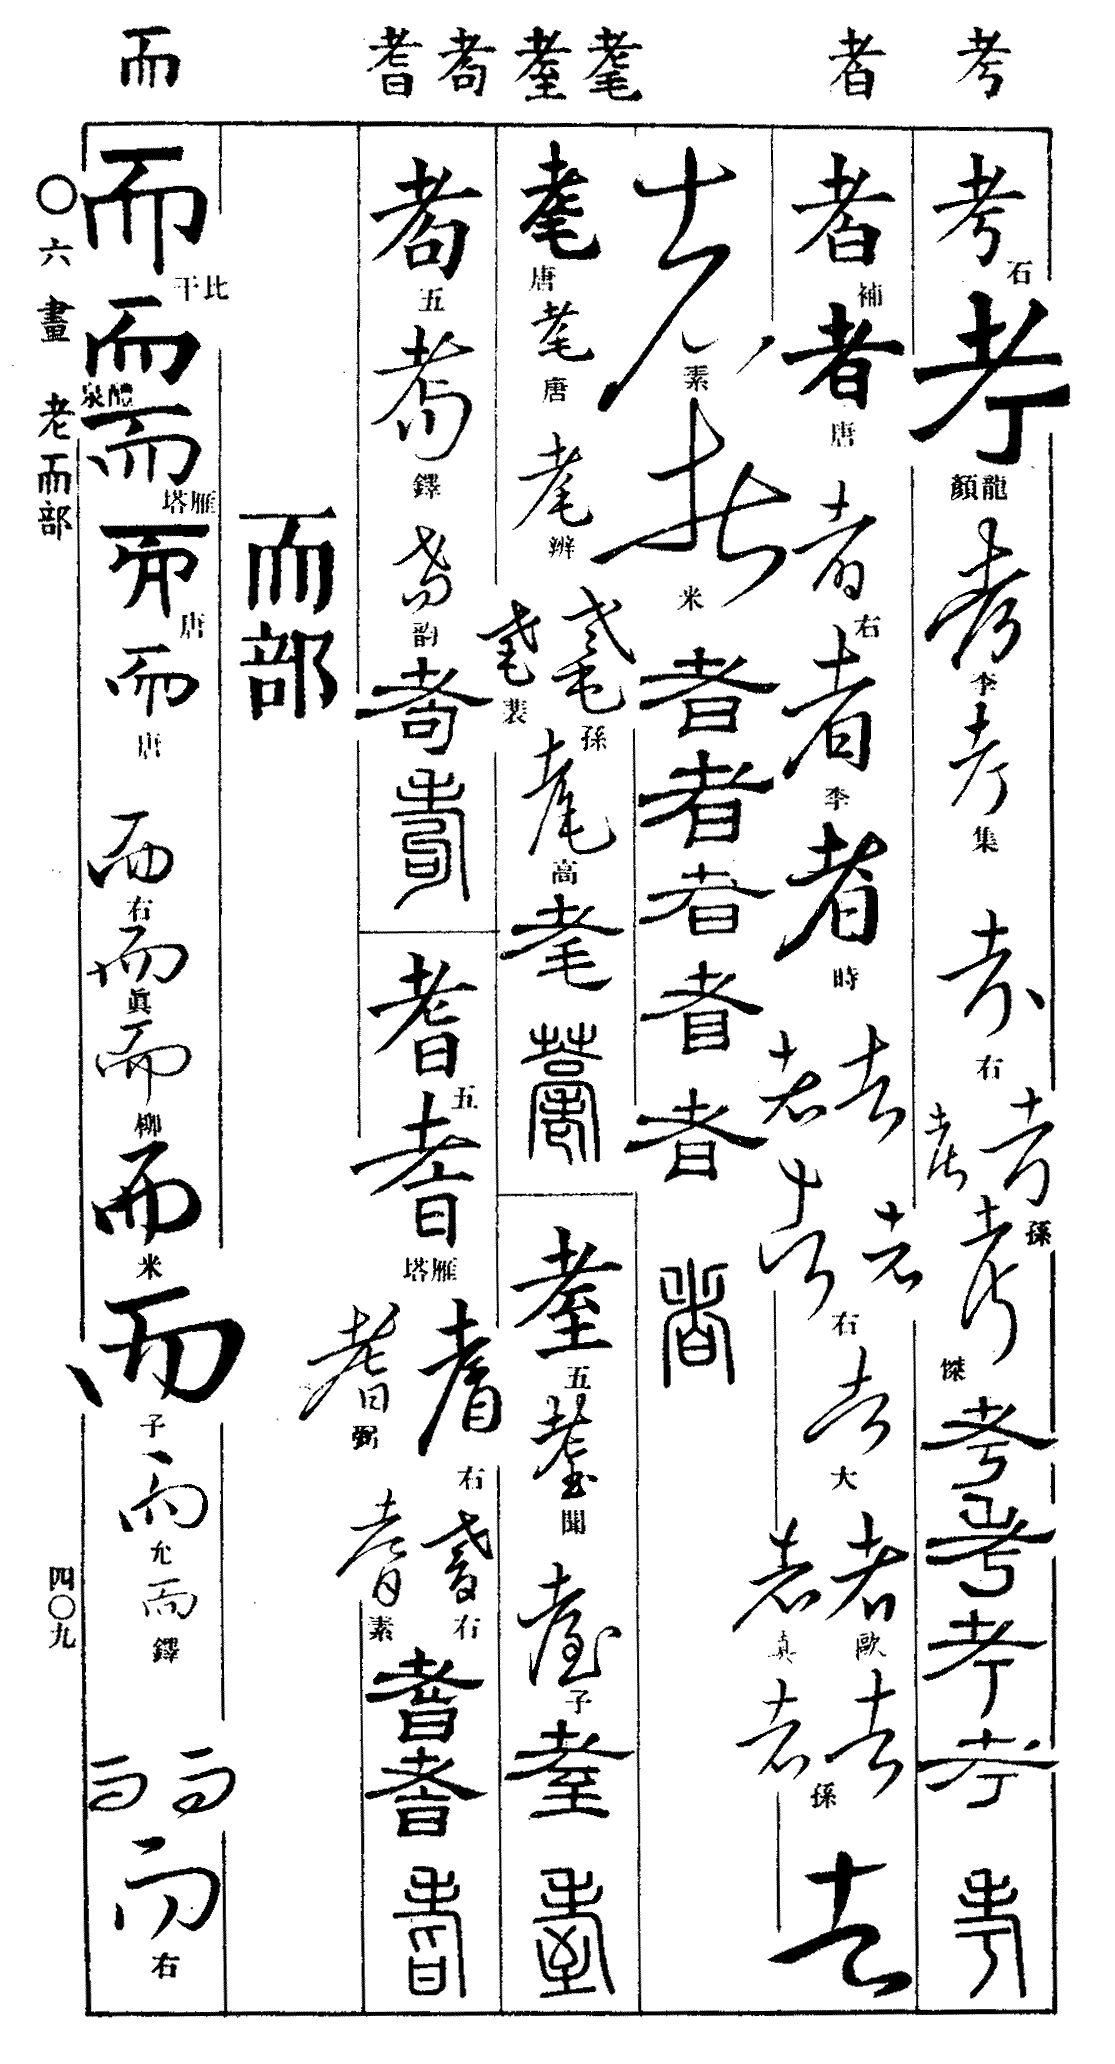 考 者 耄 耋 耇 耆 而
考 石
考 顏龍
考 李
考 集
考 右
考 考 孫
考 傑
考
考
考
考
考
者 補
者 唐
者 右
者 李
者 時
者 者
者 者 右
者 大
者 歐
者 真
者 者 孫
者
者 素
者 米
者
者
者
者
者
者
耄 唐
耄 唐
耄 辨
耄 孫
耄 裴
耄 高
耄
耄
耋 五
耋 聞
耋 子
耋
耋
耇 五
耇 鐸
耇 韵
耇
耇
耆 五
耆 雁塔
耆 右
耆 弼
耆 右
耆 素
耆
耆
耆
而部
而 比干
而 醴泉
而 雁塔
而 唐
而 唐
而 右
而 眞
而 柳
而 米
而 子
而 允
而 鐸
而 而
而 右
〇六畫 老而部
四〇九